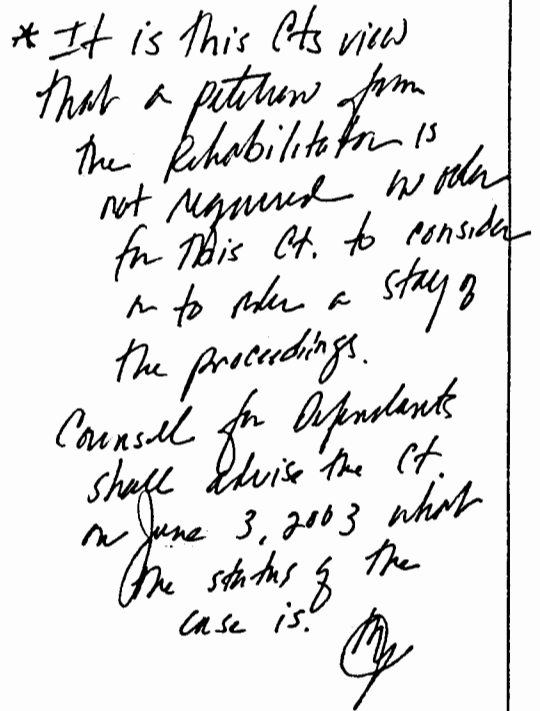 * It is this Cts view
that a petition from
the Rehabilitator is
not required in order
for this Ct. to consider
or to order a stay of
the proceedings.
Counsel for Defendants
shall advise the Ct.
on June 3, 2003 what
the status of the
case is.